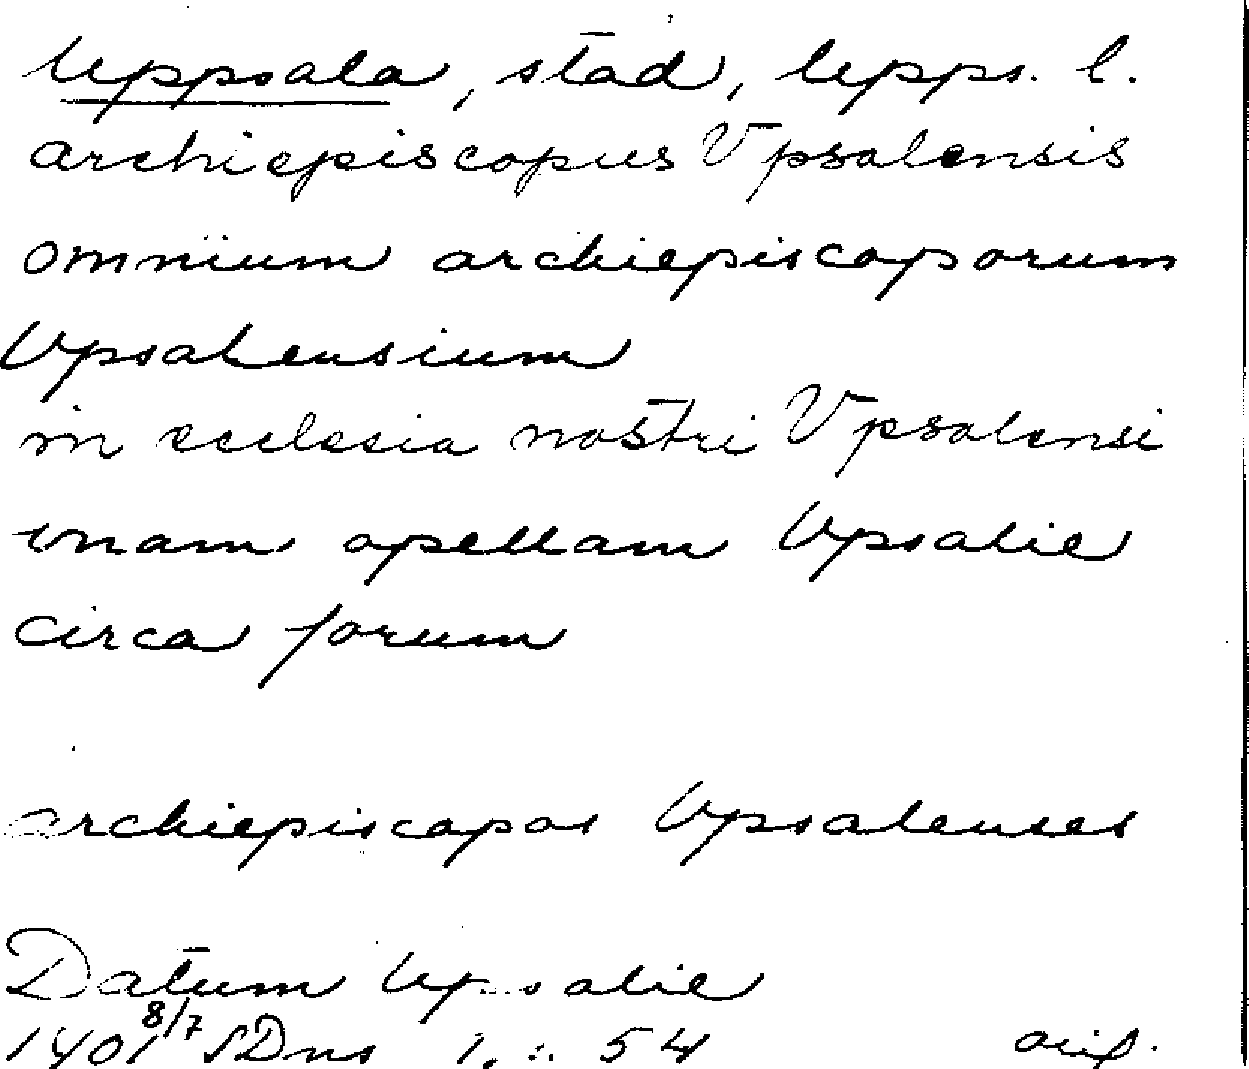 Uppsala, stad, Upps. l.
archiepiscopus Vpsalensis
omnium archiepiscoporum
Vpsalensium
in ecclesia nostri Vpsalensi
vnam apellam Vpsalie
circa forum
archiepiscopos Vpsalenses
Datum Upsalie
1401 8/7 SDns 1. : 54 orig.